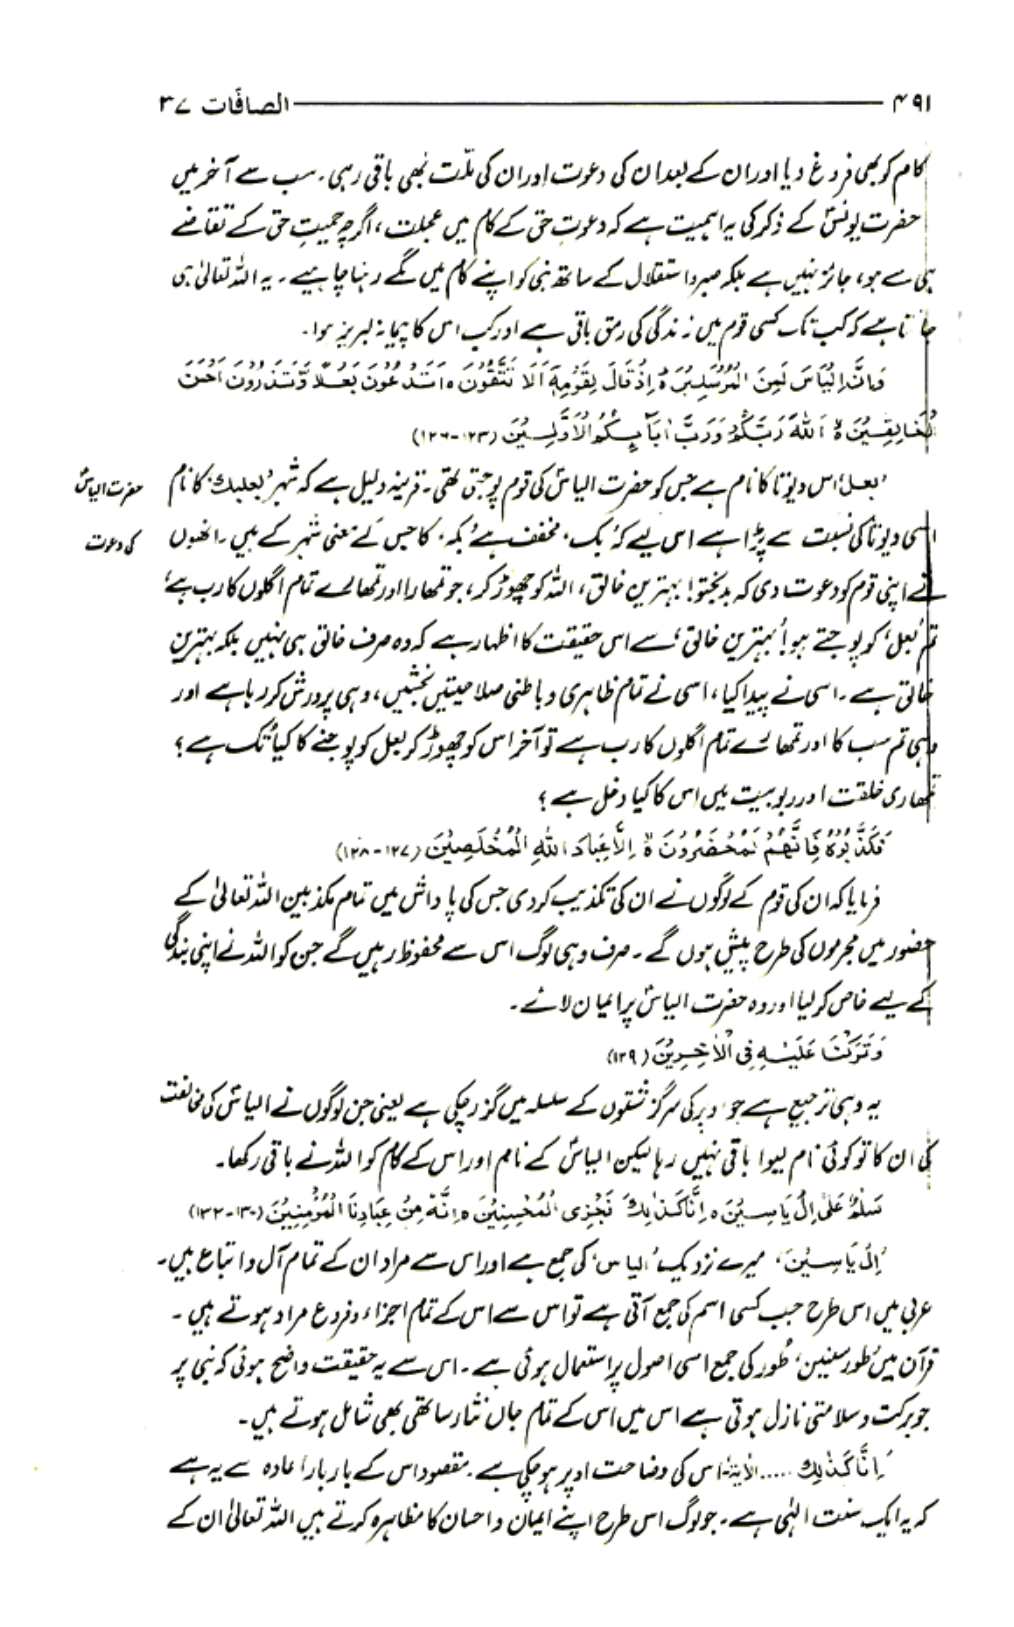 ۴۹۱ الصافات ۳۷
کام کو بھی فروغ دیا اور ان کے بعد ان کی دعوت اور ان کی ملّت بھی باقی رہی۔ سب سے آخر میں
حضرت یونسؑ کے ذکر کی یہ اہمیت ہے کہ دعوتِ حق کے کام میں عجلت، اگرچہ حمیتِ حق کے تقاضے
ہی سے ہو، جائز نہیں ہے بلکہ صبر و استقلال کے ساتھ نبی کو اپنے کام میں لگے رہنا چاہیے۔ یہ اللہ تعالیٰ ہی
جانتا ہے کہ کب تک کسی قوم میں زندگی کی رمق باقی ہے اور کب اس کا پیمانہ لبریز ہوا۔
وَاِنَّ اِلْيَاسَ لَمِنَ الْمُرْسَلِيْنَ ہ اِذْ قَالَ لِقَوْمِهٖٓ اَلَا تَتَّقُوْنَ ہ اَتَدْعُوْنَ بَعْلًا وَّتَذَرُوْنَ اَحْسَنَ
الْخَالِقِيْنَ ہ اَللّٰهَ رَبَّكُمْ وَرَبَّ اٰبَآئِكُمُ الْاَوَّلِيْنَ (۱۲۳-۱۲۶)
حضرت الیاسؑ
کی دعوت
’بعل‘ اس دیوتا کا نام ہے جس کو حضرت الیاسؑ کی قوم پوجتی تھی۔ قرینہ دلیل ہے کہ شہر ’بعلبک‘ کا نام
اسی دیوتا کی نسبت سے پڑا ہے اس لیے کہ ’بک‘ مخفف ہے ’بکہ‘ کا جس کے معنی شہر کے ہیں۔ انھوں
نے اپنی قوم کو دعوت دی کہ بدبختو! بہترین خالق، اللہ کو چھوڑ کر، جو تمھارا اور تمھارے تمام اگلوں کا رب ہے،
تم ’بعل‘ کو پوجتے ہو! ’بہترین خالق‘ سے اس حقیقت کا اظہار ہے کہ وہ صرف خالق ہی نہیں بلکہ بہترین
خالق ہے۔ اسی نے پیدا کیا، اسی نے تمام ظاہری و باطنی صلاحیتیں بخشیں، وہی پرورش کر رہا ہے اور
وہی تم سب کا اور تمھارے تمام اگلوں کا رب ہے تو آخر اس کو چھوڑ کر بعل کو پوجنے کا کیا تُک ہے؟
تمھاری خلقت اور ربوبیت میں اس کا کیا دخل ہے؟
فَكَذَّبُوْهُ فَاِنَّهُمْ لَمُحْضَرُوْنَ ہ اِلَّا عِبَادَ اللّٰهِ الْمُخْلَصِيْنَ (۱۲۷-۱۲۸)
فرمایا کہ ان کی قوم کے لوگوں نے ان کی تکذیب کر دی جس کی پاداش میں تمام مکذبین اللہ تعالیٰ کے
حضور میں مجرموں کی طرح پیش ہوں گے۔ صرف وہی لوگ اس سے محفوظ رہیں گے جن کو اللہ نے اپنی بندگی
کے لیے خاص کر لیا اور وہ حضرت الیاسؑ پر ایمان لائے۔
وَتَرَكْنَا عَلَيْهِ فِی الْاٰخِرِيْنَ (۱۲۹)
یہ وہی ترجیع ہے جو اوپر کی سرگزشتوں کے سلسلہ میں گزر چکی ہے یعنی جن لوگوں نے الیاسؑ کی مخالفت
کی ان کا تو کوئی نام لیوا باقی نہیں رہا لیکن الیاسؑ کے نام اور اس کے کام کو اللہ نے باقی رکھا۔
سَلٰمٌ عَلٰٓی اِلْ يَاسِيْنَ ہ اِنَّا كَذٰلِكَ نَجْزِی الْمُحْسِنِيْنَ ہ اِنَّهٗ مِنْ عِبَادِنَا الْمُؤْمِنِيْنَ (۱۳۰-۱۳۲)
’اِلْ يَاسِيْنَ‘ میرے نزدیک ’الیاس‘ کی جمع ہے اور اس سے مراد ان کے تمام آل و اتباع ہیں۔
عربی میں اس طرح جب کسی اسم کی جمع آتی ہے تو اس سے اس کے تمام اجزاء و فروع مراد ہوتے ہیں۔
قرآن میں ’طور سینین‘ طُور کی جمع اسی اصول پر استعمال ہوئی ہے۔ اس سے یہ حقیقت واضح ہوئی کہ نبی پر
جو برکت و سلامتی نازل ہوتی ہے اس میں اس کے تمام جاں نثار ساتھی بھی شامل ہوتے ہیں۔
’اِنَّا كَذٰلِكَ ..... الاٰیۃ‘ اس کی وضاحت اوپر ہو چکی ہے۔ مقصود اس کے بار بار اعادہ سے یہ ہے
کہ یہ ایک سنت الٰہی ہے۔ جو لوگ اس طرح اپنے ایمان و احسان کا مظاہرہ کرتے ہیں اللہ تعالیٰ ان کے